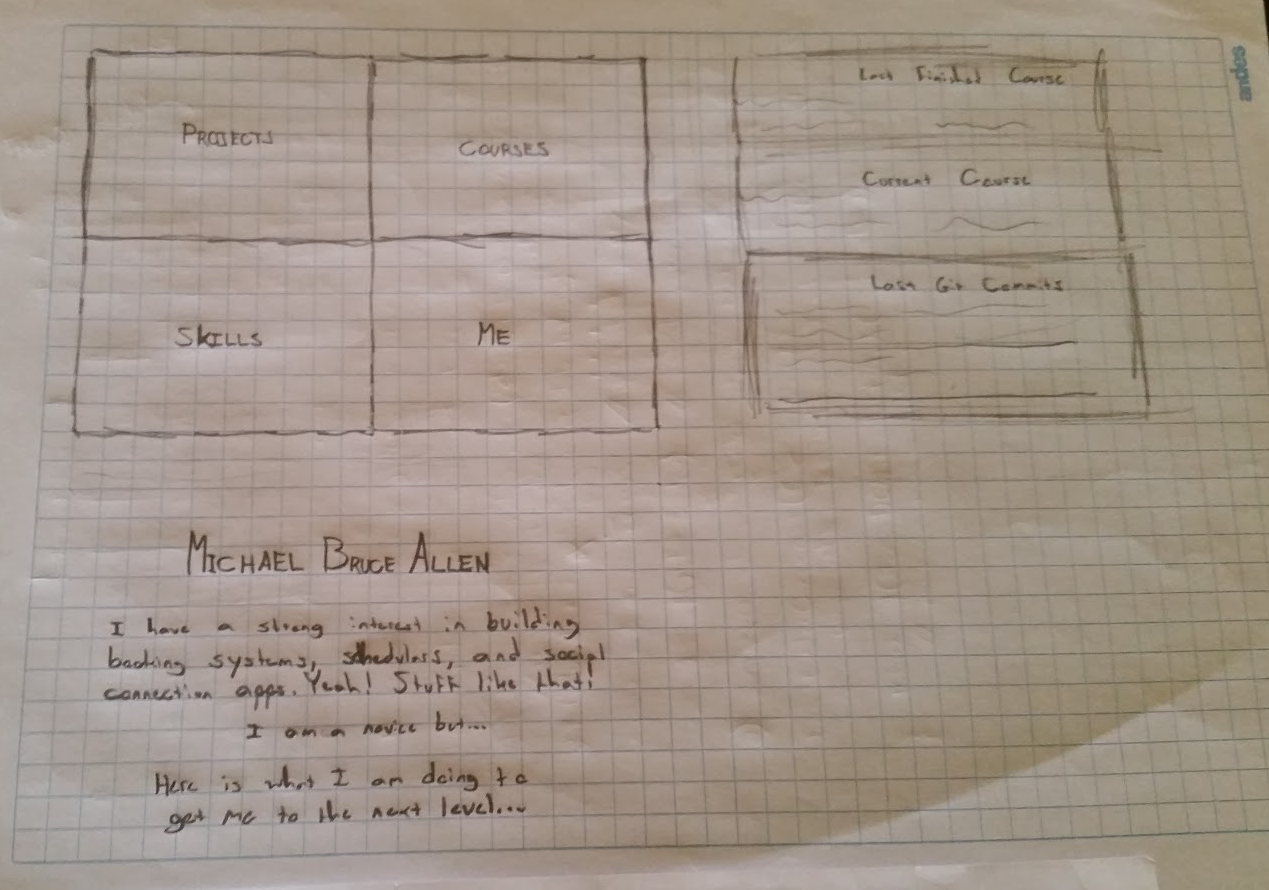 PROJECTS
COURSES
SKILLS
ME
Last Finished Course
Current Course
Last Git Commits
andes
MICHAEL BRUCE ALLEN
I have a strong interest in building
booking systems, schedulers, and social
connection apps. Yeah! Stuff like that!
I am a novice but...
Here is what I am doing to
get me to the next level...